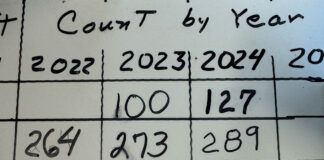 t Count by Year
2022 2023 2024 20
100 127
264 273 289